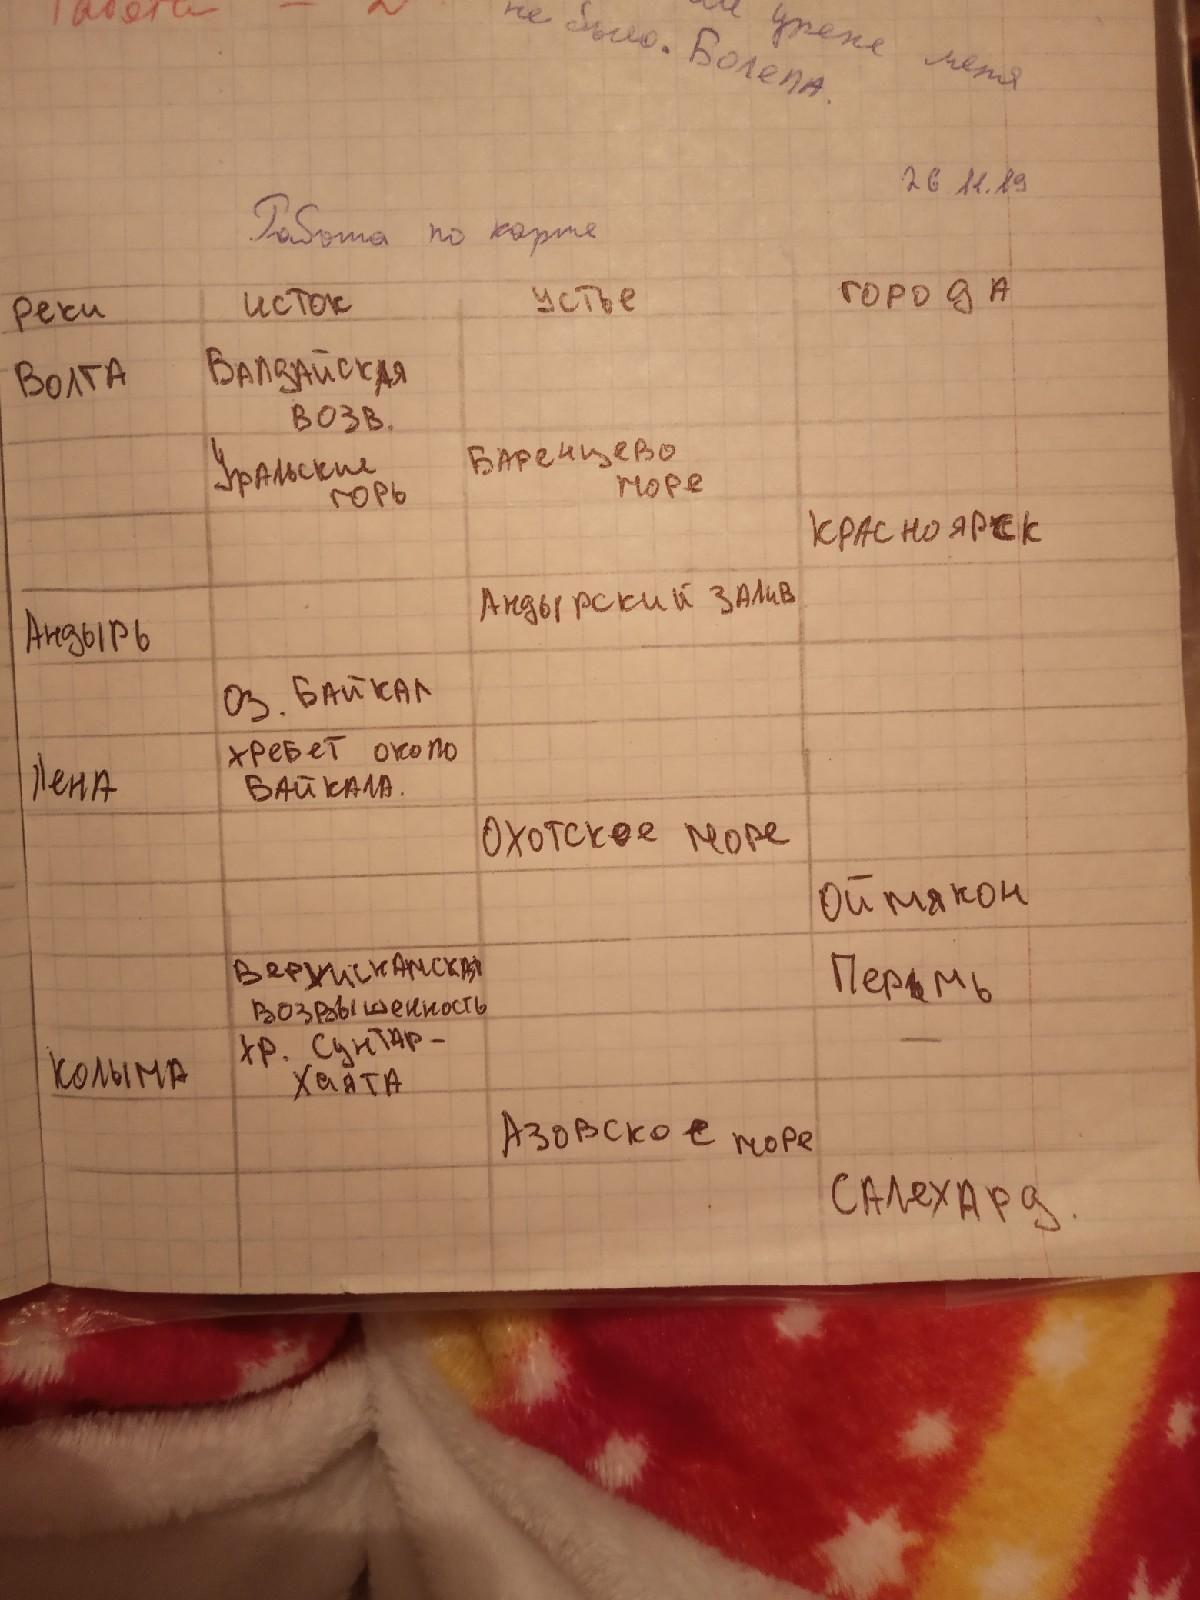 Работа - 2
уроке меня
не было. Болела.
26 11.19
Работа по карте
реки исток устье города
Волга Валдайская
возв.
Уральские Баренцево
горь море
Красноярск
Андырь Андырский залив
Оз. Байкал
Лена хребет около
Байкала.
Охотское море
Оймякон
Пермь
возвышенность
—
Колыма хр. Сунтар-
Хаята
Азовское море
Салехард.